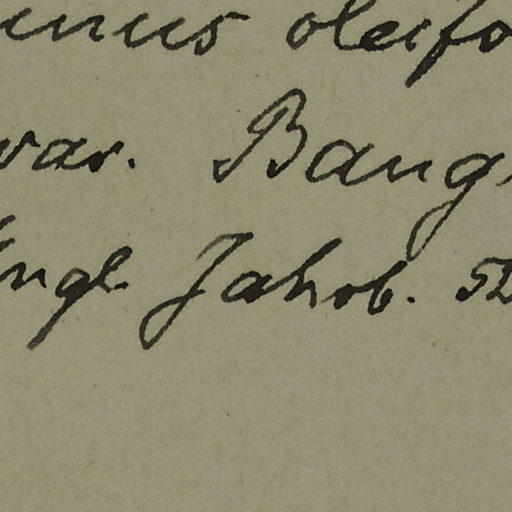 inus oleifo
var. Bang
Engl. Jahrb. 52